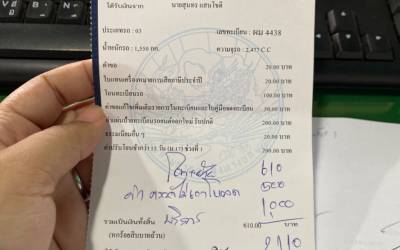 ได้รับเงินจาก นายสุนทร แสนโชติ
ประเภทรถ : 03 เลขทะเบียน : ผม 4438
น้ำหนักรถ : 1,550 กก. ความจุรถ : 2,477 C.C
ค่าคำขอ 20.00 บาท
ใบแทนเครื่องหมายการเสียภาษีประจำปี 20.00 บาท
โอนทะเบียนรถ 100.00 บาท
ค่าขอแก้ไขเพิ่มเติมรายการในทะเบียนและใบคู่มือจดทะเบียน 50.00 บาท
ค่าแผ่นป้ายทะเบียนรถยนต์ออกใหม่ รับปกติ 200.00 บาท
ธรรมเนียมอื่น ๆ 20.00 บาท
ค่าปรับโอนช้ากว่า 15 วัน (ม.17) ช่วงที่ 1 200.00 บาท
610
500
1,000
รวมเป็นเงินทั้งสิ้น บริการ 610.00 บาท
(หกร้อยสิบบาทถ้วน) 2110